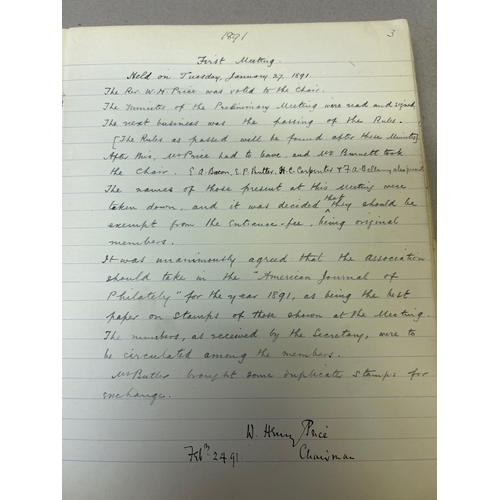 1891
3
First Meeting.
Held on Tuesday, January 27. 1891.
The Rev. W. H. Price was voted to the Chair.
The Minutes of the Preliminary Meeting were read and signed.
The next business was the passing of the Rules.
[The Rules as passed will be found after these Minutes]
After this, Mr Price had to leave, and Mr Burnett took
the Chair. E. A. Bacon, E. P. Butler, H. C. Carpenter & F. A. Bellamy also joined
The names of those present at this Meeting were
taken down, and it was decided that they should be
exempt from the Entrance-fee, being original
members.
It was unanimously agreed that the Association
should take in the "American Journal of
Philately" for the year 1891, as being the best
paper on Stamps of those shown at the Meeting.
The numbers, as received by the Secretary, were to
be circulated among the members.
Mr Butler brought some duplicate stamps for
exchange.
W. Henry Price
Feb. 24. 91. Chairman